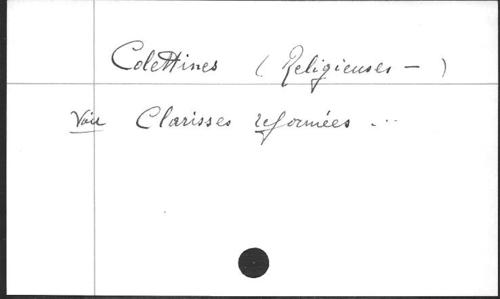 Colettines (Religieuses —)
Voir Clarisses réformées ...